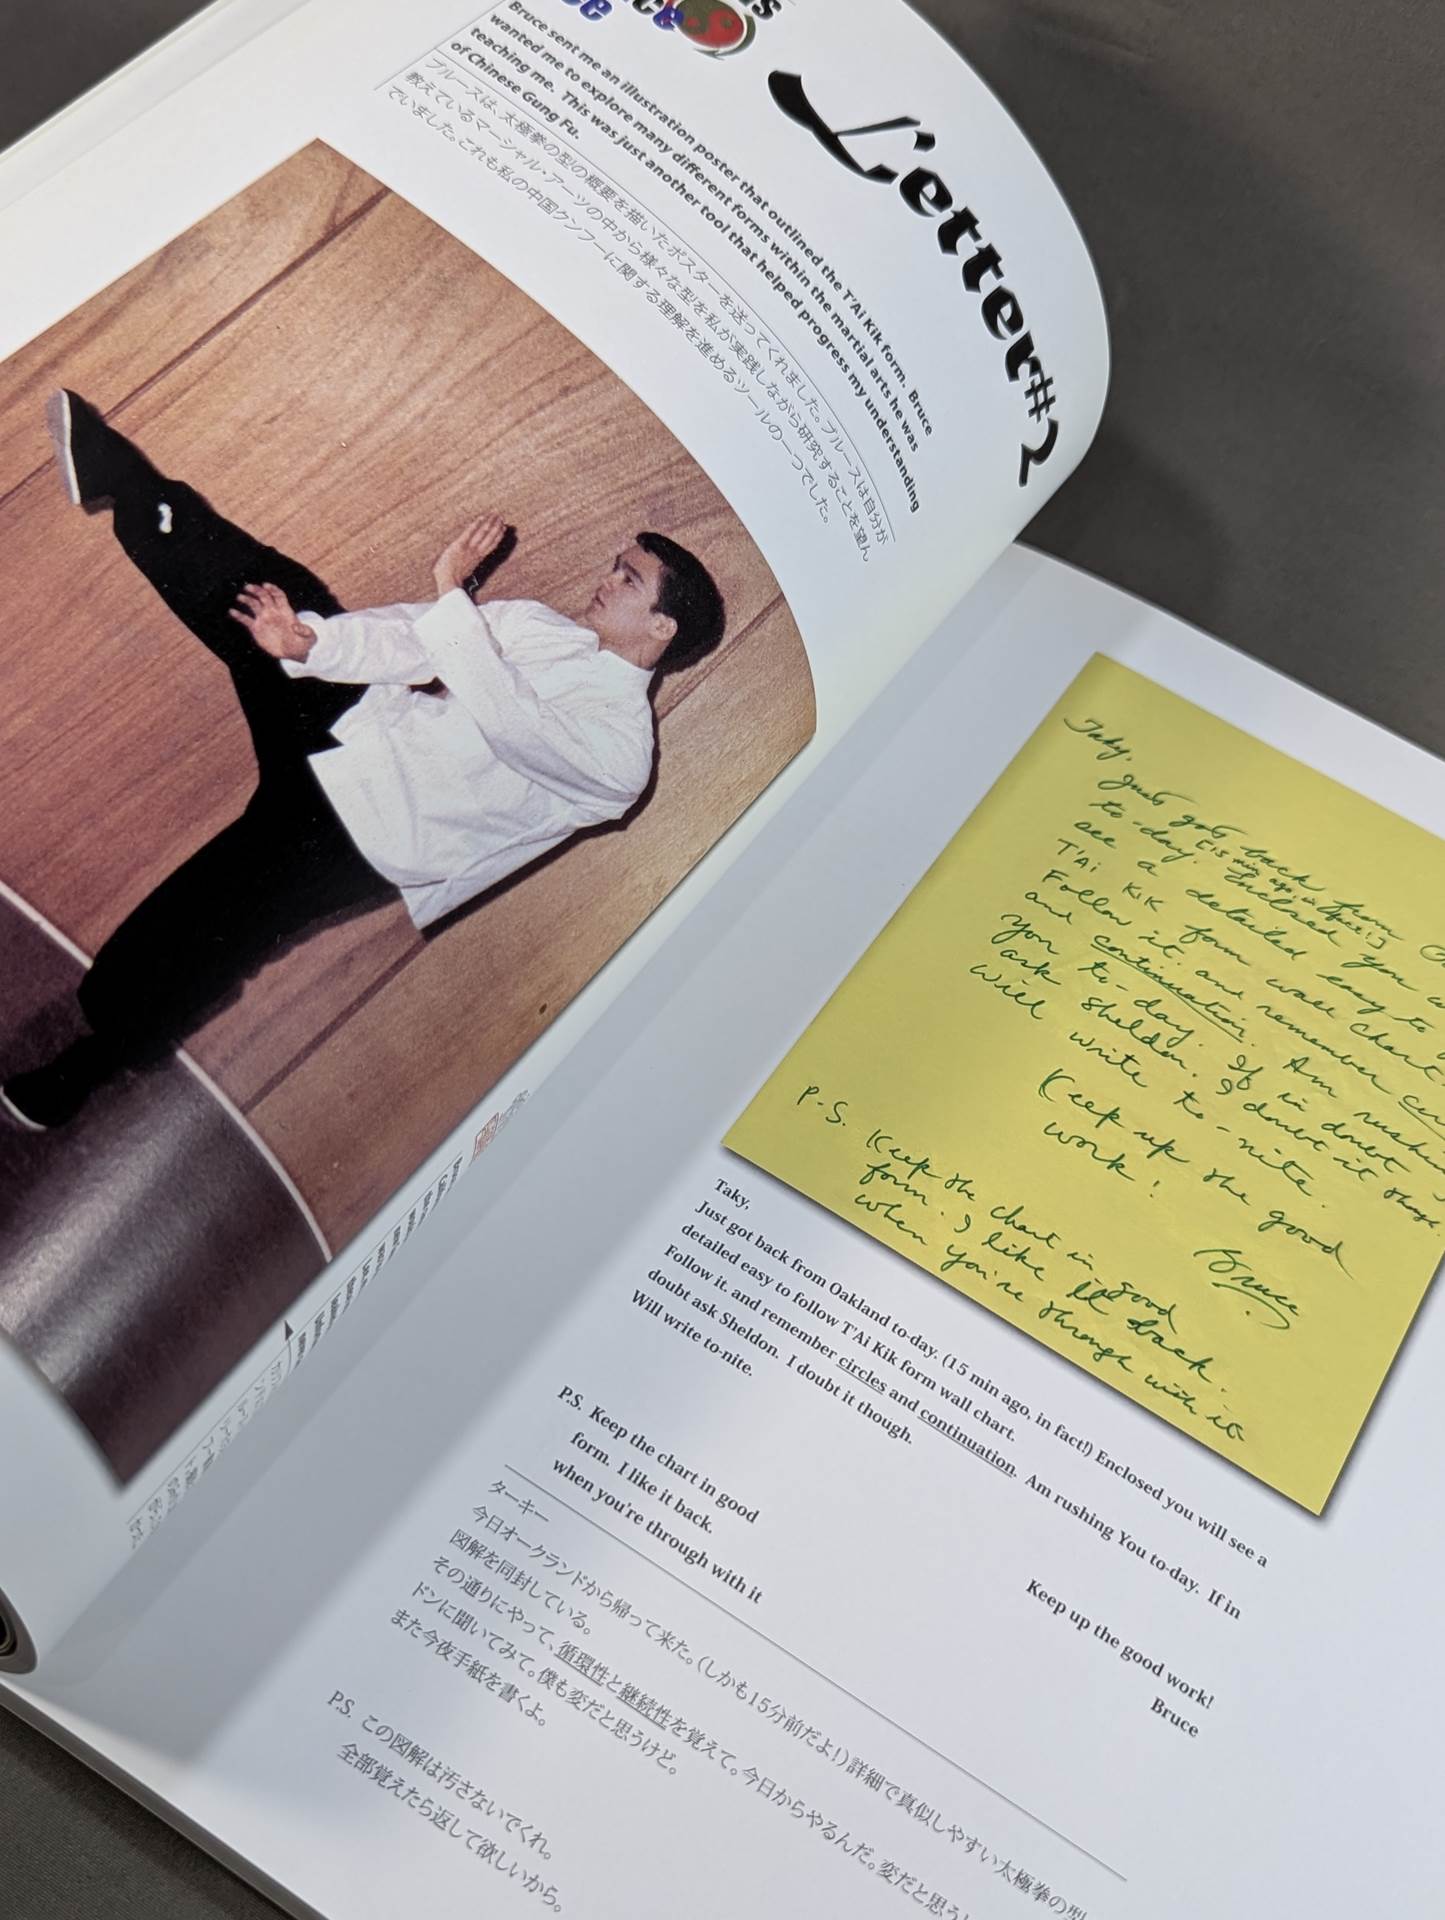 Letter#2
Bruce sent me an illustration poster that outlined the T'Ai Kik form. Bruce
wanted me to explore many different forms within the martial arts he was
teaching me. This was just another tool that helped progress my understanding
of Chinese Gung Fu.
ブルースは、太極拳の型の概要を描いたポスターを送ってくれました。ブルースは自分が
教えているマーシャル・アーツの中から様々な型を私が実践しながら研究することを望ん
でいました。これも私の中国クンフーに関する理解を進めるツールの一つでした。
Taky,
Just got back from
to-day. (15 min ago, in fact!)
Enclosed you
see a detailed easy to
T'Ai Kik form wall chart.
Follow it. and remember
and continuation. Am rushing
you to-day. If in doubt
ask Sheldon. I doubt it though.
Will write to-nite.
Keep up the good
work!
Bruce
P.S. Keep the chart in good
form. I like it back.
when you're through with it
Taky,
Just got back from Oakland to-day. (15 min ago, in fact!) Enclosed you will see a
detailed easy to follow T'Ai Kik form wall chart.
Follow it. and remember circles and continuation. Am rushing You to-day. If in
doubt ask Sheldon. I doubt it though.
Will write to-nite.
Keep up the good work!
Bruce
P.S. Keep the chart in good
form. I like it back.
when you're through with it
ターキー
今日オークランドから帰って来た。(しかも15分前だよ!)詳細で真似しやすい太極拳の型
図解を同封している。
その通りにやって、循環性と継続性を覚えて。今日からやるんだ。変だと思
ドンに聞いてみて。僕も変だと思うけど。
また今夜手紙を書くよ。
P.S. この図解は汚さないでくれ。
全部覚えたら返して欲しいから。